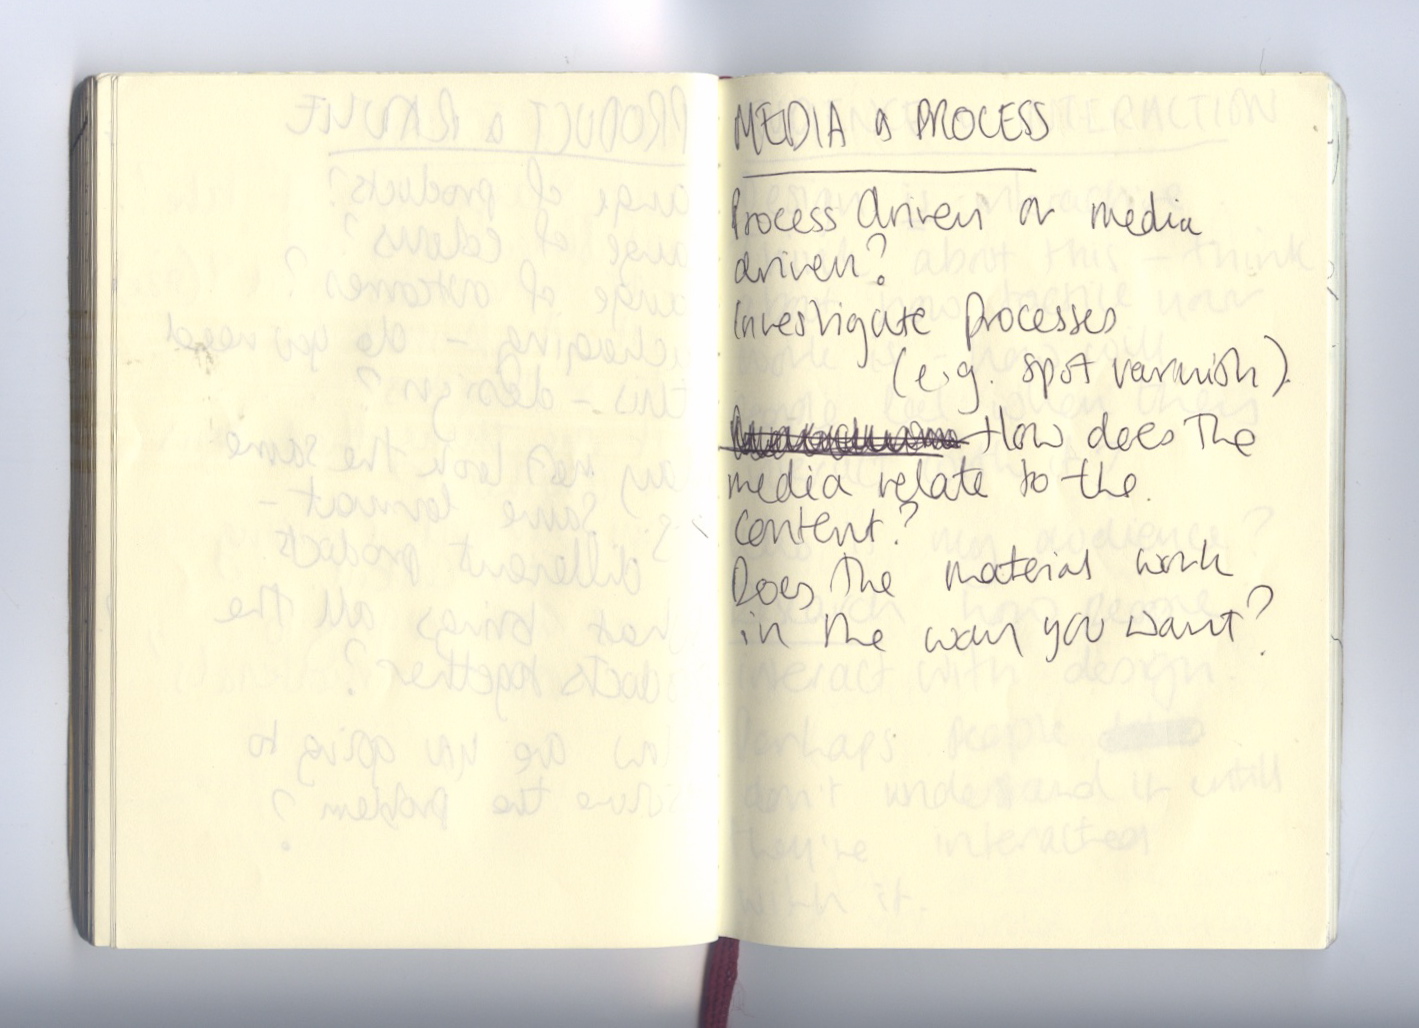 MEDIA & PROCESS
Process driven or media
driven?
Investigate processes
(e.g. spot varnish).
How does the
media relate to the
content?
Does the material work
in the way you want?